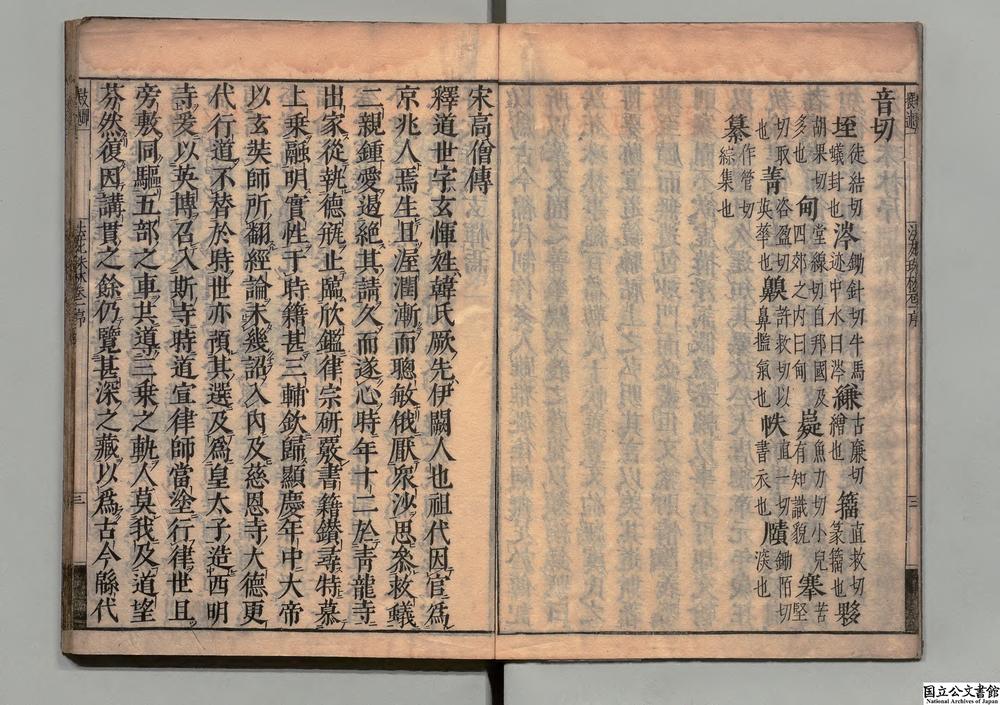 音切
垤徒結切蟻封也涔鋤針切牛馬迹中水曰涔縑古廉切繒也籀直救切篆籀也夥
胡果切多也甸堂線切自邦國及四郊之內曰甸嶷魚力切小兒有知識貌搴苦堅
切取也菁咨盈切英華也齅許救切以鼻擥氣也帙直一切書衣也賾鋤陌切深也
纂作管切綜集也
宋高僧傳
釋道世字玄惲姓韓氏厥先伊闕人也祖代因官爲
京兆人焉生且渥潤漸而聰敏俄厭衆沙思叅救蟻
二親鍾愛遏絕其請久而遂心時年十二於靑龍寺
出家從執德瓶止臨欣鑑律宗研覈書籍鑽尋特慕
上乘融明實性于時籍甚三輔欽歸顯慶年中大帝
以玄奘師所翻經論未幾詔入內及慈恩寺大德更
代行道不替於時世亦預其選及爲皇太子造西明
寺爰以英博召入斯寺時道宣律師當塗行律世且
旁敷同驅五部之車共導三乘之軌人莫我及道望
芬然復因講貫之餘仍覽甚深之藏以爲古今緜代
国立公文書館
National Archives of Japan